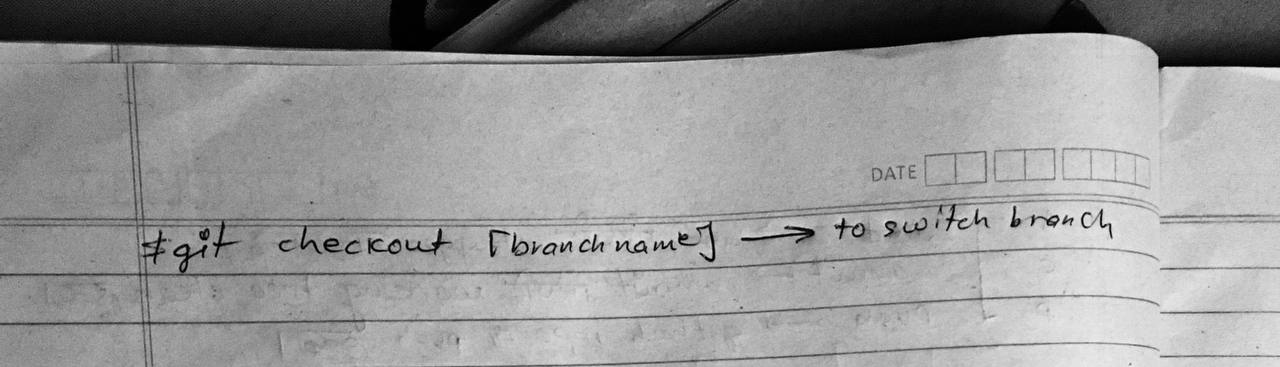 DATE
$git checkout [branch name] → to switch branch